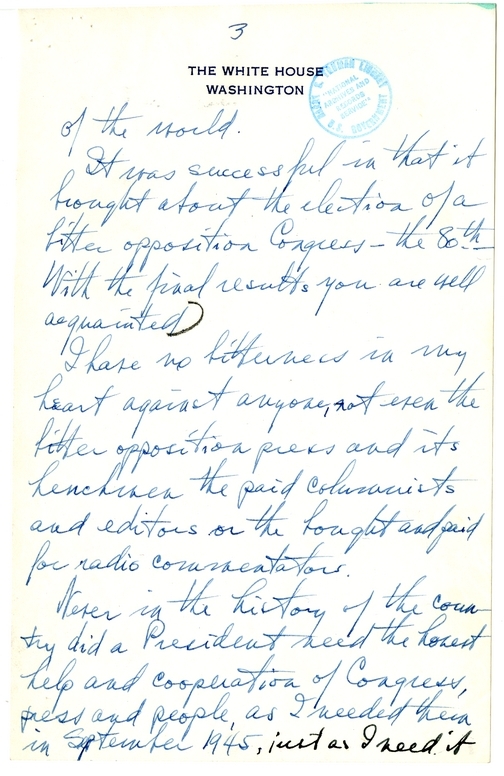 3
THE WHITE HOUSE
WASHINGTON
HARRY S. TRUMAN LIBRARY
"NATIONAL
ARCHIVES AND
RECORDS
SERVICE"
U.S. GOVERNMENT
of the world.
It was successful in that it
brought about the election of a
bitter opposition Congress – the 80th
With the final results you are well
acquainted)
I have no bitterness in my
heart against anyone, not even the
bitter opposition press and its
henchmen the paid columnists
and editors or the bought and paid
for radio commentators.
Never in the history of the coun-
try did a President need the honest
help and cooperation of Congress,
press and people, as I needed them
in September 1945, just as I need it